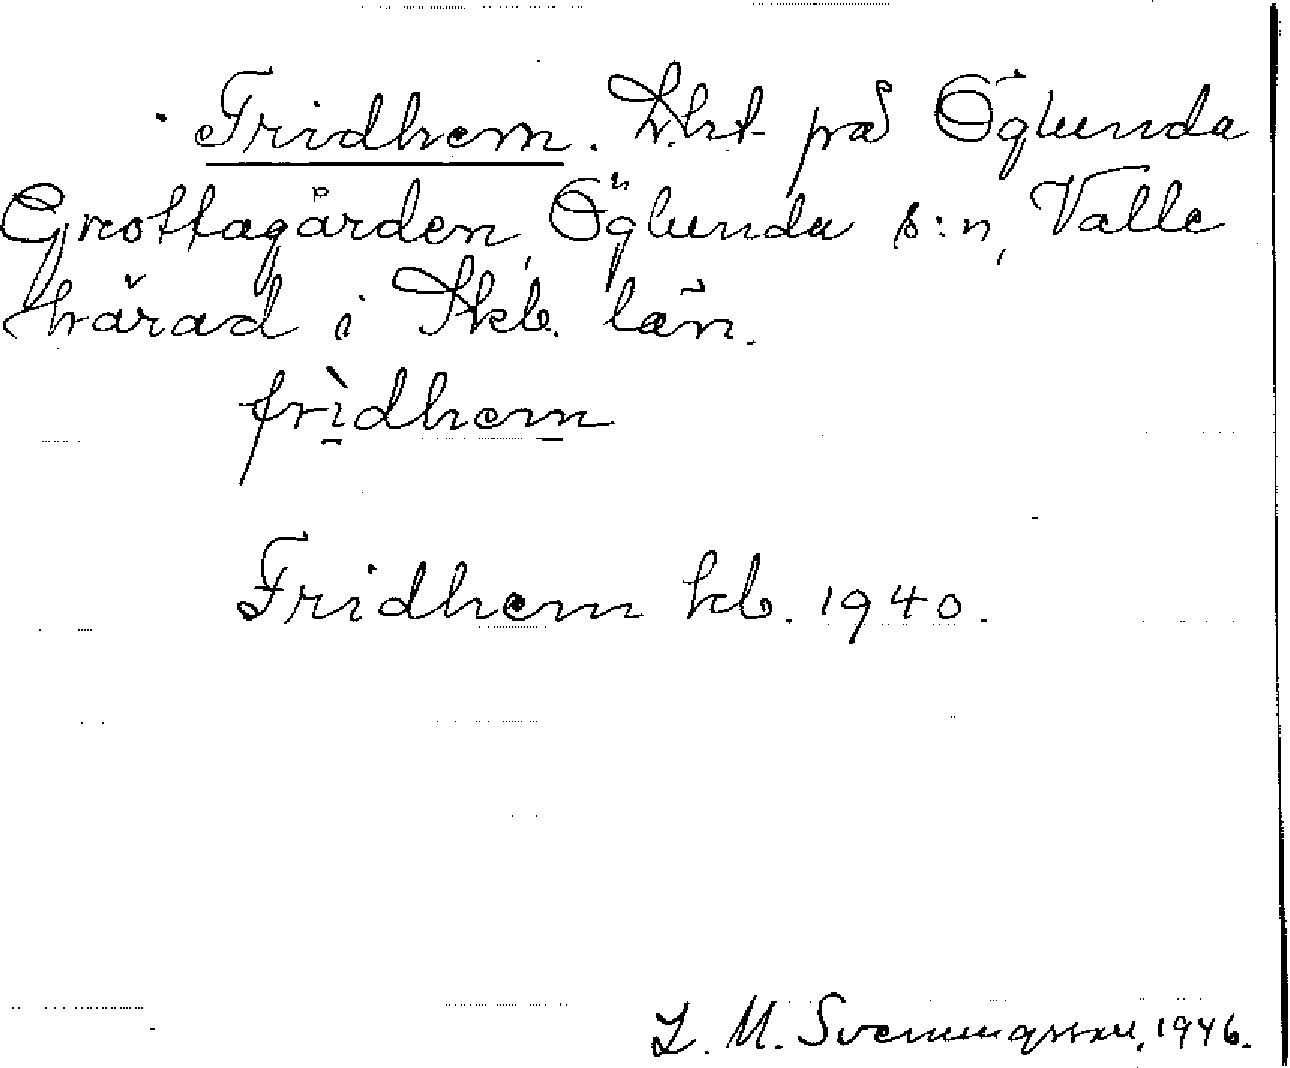 Fridhem. Lht på Öglunda
Grottagården, Öglunda s:n, Valle
härad i Skb. län.
frìdhem
Fridhem kb. 1940.
L. M. Svenungsson, 1946.